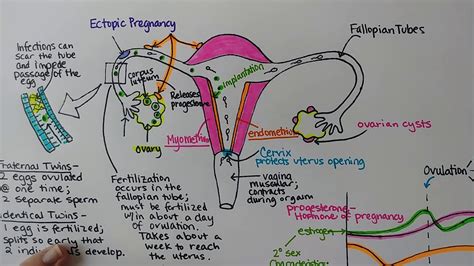 Ectopic Pregnancy
Fallopian Tubes
Infections can
scar the tube
and impede
passage of the
egg
corpus
luteum
Releases
progesterone
implantation
ovary
Myometrium
endometrium
ovarian cysts
Cervix
protects uterus opening
vagina
muscular;
contracts
during orgasm
Fertilization
occurs in the
fallopian tube;
must be fertilized
w/in about a day
of ovulation.
Takes about a
week to reach
the uterus.
Fraternal Twins-
2 eggs ovulated
@ one time;
2 separate sperm
Identical Twins-
1 egg is fertilized;
splits so early that
2 develop.
Ovulation
progesterone-
Hormone of pregnancy
estrogen
2° sex
Characteristics: